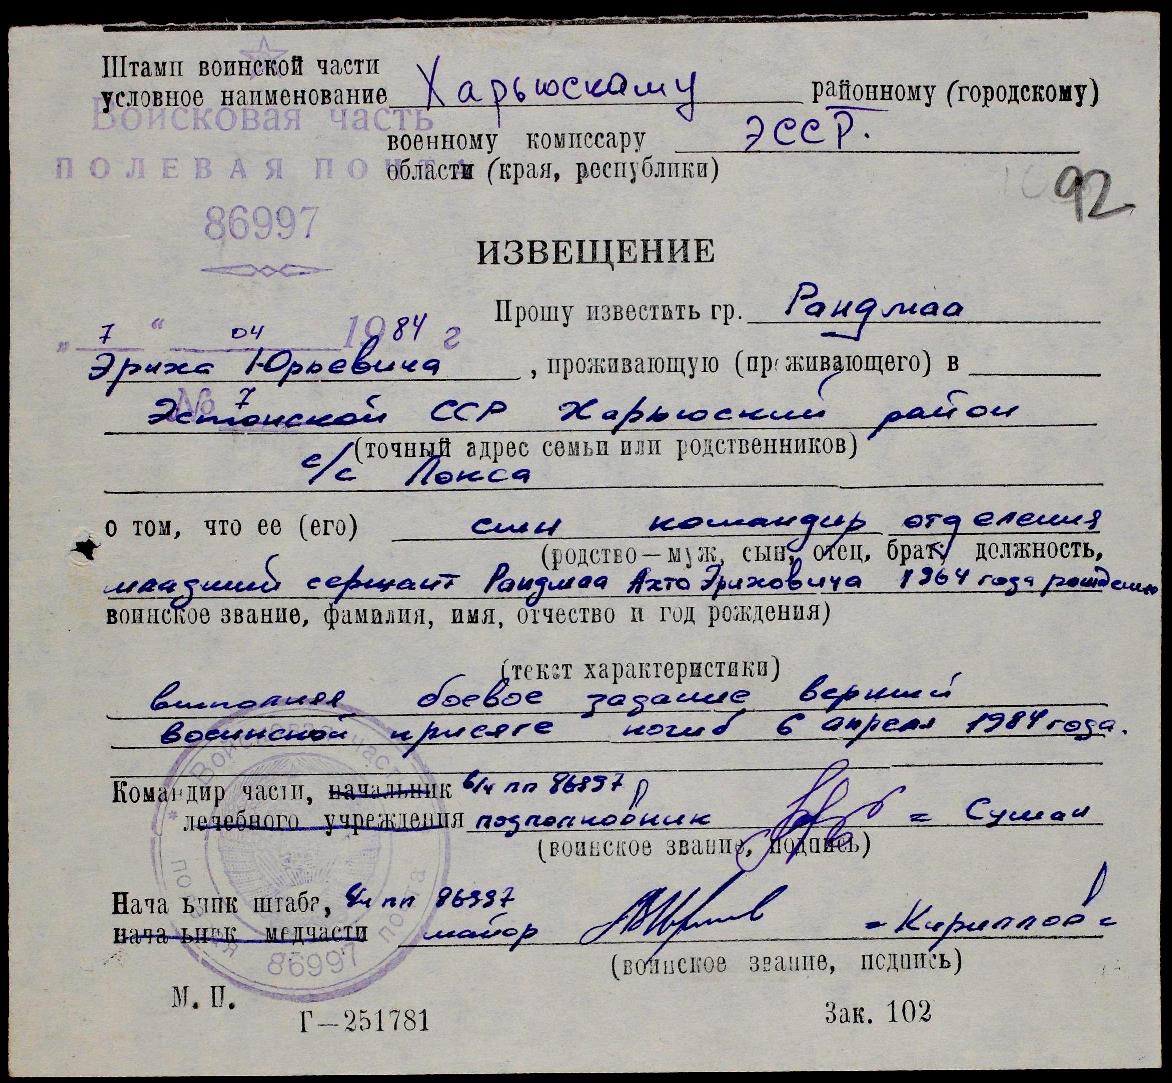 Штамп воинской части
условное наименование Харьюскаму районному (городскому)
Войсковая часть
военному комиссару ЭССР.
ПОЛЕВАЯ ПОЧТА
области (края, республики)
92
86997
ИЗВЕЩЕНИЕ
Прошу известить гр. Рандмаа
„ 7 “ 04 1984 г
Эриха Юрьевича, проживающую (проживающего) в
№ 7
Эстонской ССР Харьюский район
(точный адрес семьи или родственников)
с/с Локса
о том, что ее (его) сын командир отделения
(родство—муж, сын, отец, брат, должность,
младший сержант Рандмаа Ахто Эрихович 1964 года рождения
воинское звание, фамилия, имя, отчество и год рождения)
(текст характеристики)
выполняя боевое задание верный
воинской присяге погиб 6 апреля 1984 года.
Командир части, начальник в/ч пп 86997
лечебного учреждения подполковник = Суман
(воинское звание, подпись)
Начальник штаба, в/ч пп 86997
начальник медчасти майор = Кириллов =
(воинское звание, подпись)
Войсковая часть полевая почта 86997
М. П.
Г—251781
Зак. 102